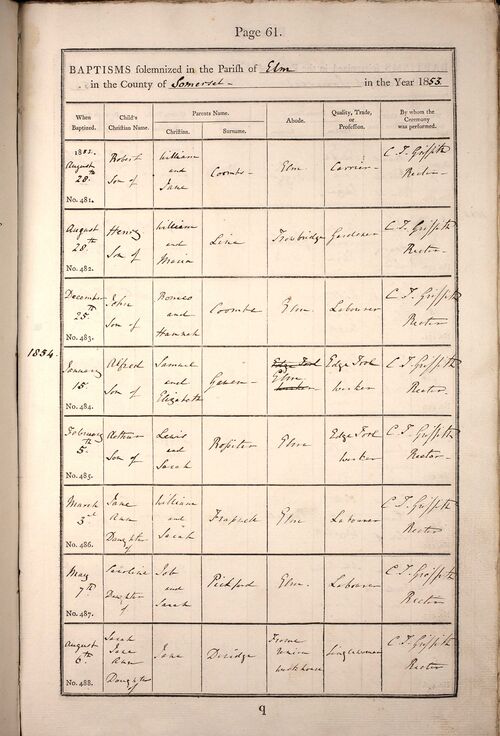 Page 61.
BAPTISMS solemnized in the Parish of Elm
in the County of Somerset in the Year 1853.
When Baptized. Child's Christian Name. Parents Name. Christian. Surname. Abode. Quality, Trade, or Profession. By whom the Ceremony was performed.
1853.
August 28th No. 481. Robert Son of William and Jane Coombs Elm Carrier C. T. Griffith Rector
August 28th No. 482. Henry Son of William and Maria Line Trowbridge Gardener C. T. Griffith Rector
December 25th No. 483. John Son of Romeo and Hannah Coombs Elm Labourer C. T. Griffith Rector
1854.
January 15 No. 484. Alfred Son of Samuel and Elizabeth Edge Tool Elm Edge Tool worker C. T. Griffith Rector
February 5. No. 485. Arthur Son of Lewis and Sarah Rossiter Elm Edge Tool worker C. T. Griffith Rector
March 3rd No. 486. Jane Ann Daughter of William and Sarah Elm Labourer C. T. Griffith Rector
May 7th No. 487. Caroline Daughter of Job and Sarah Pickford Elm. Labourer C. T. Griffith Rector
August 6th No. 488. Sarah Jane Ann Daughter of Jane Frome Union workhouse Singlewoman C. T. Griffith Rector
q